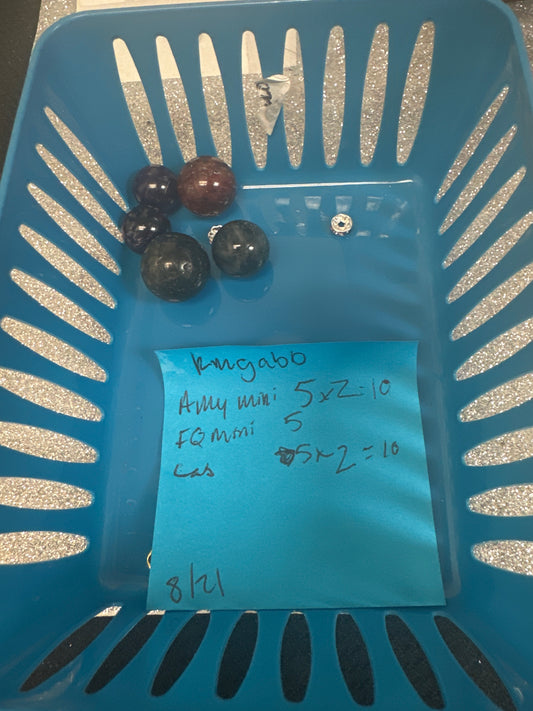 kmgabb
Amy mini 5x2=10
FQ mini 5
Las 5x2=10
8/21